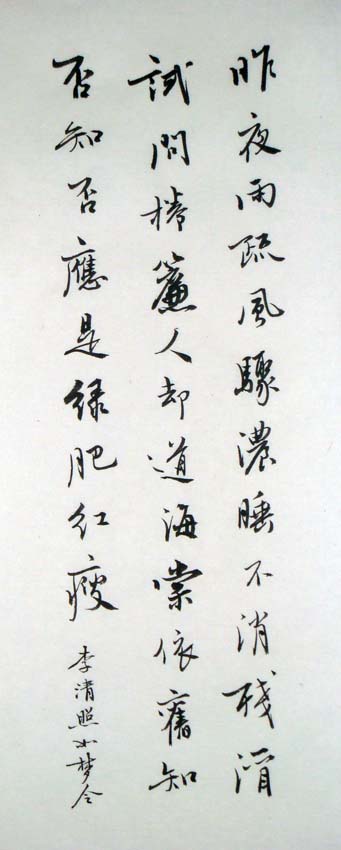 昨夜雨疏風驟濃睡不消殘酒
試問捲簾人却道海棠依舊知
否知否應是緑肥紅瘦
李清照如梦令